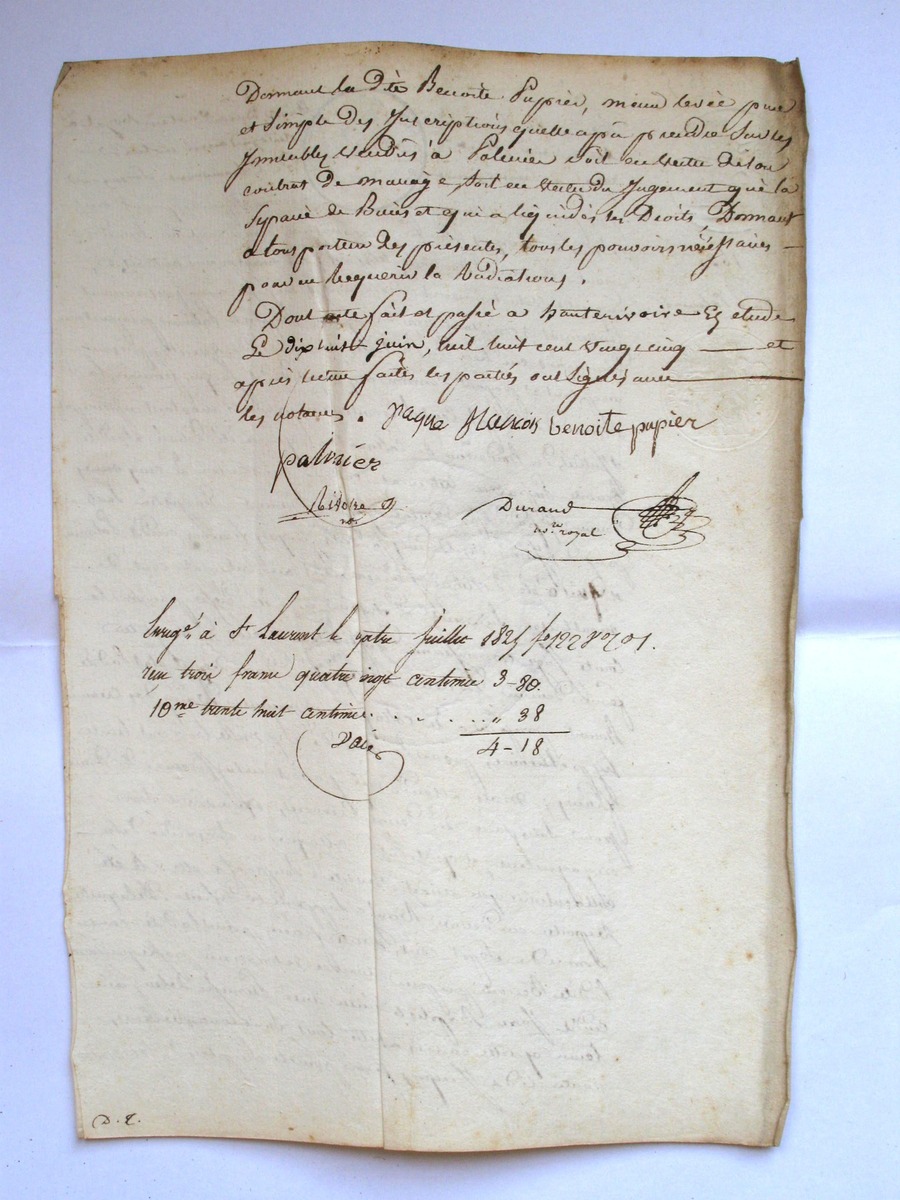 Donnant la dte Benoite Papier, main levée pure
et simple des Inscriptions quelle a pu prendre sur les
Immeubles vendus à Palmier soit en vertu de son
contrat de mariage, soit en vertu du Jugement qui la
Separée de Biens et qui a liquidés ses Droits, Donnant
a tous porteur des présentes, tous les pouvoirs nécéssaires
pour en Requerir la Radiations.
Dont acte fait et passé a hauterivoire Es etude
Le dix huit juin, mil huit cent vingt cinq et
après lecture faites les parties ont signés avec
les notaires. paque benoite papier
palmier
Durand
Nre royal
Enregé à St Laurent le quatre Juillet 1825
reçu trois francs quatre vingt centimes 3-80.
10me trente huit centimes . . . . . . " 38
4-18
D. L.